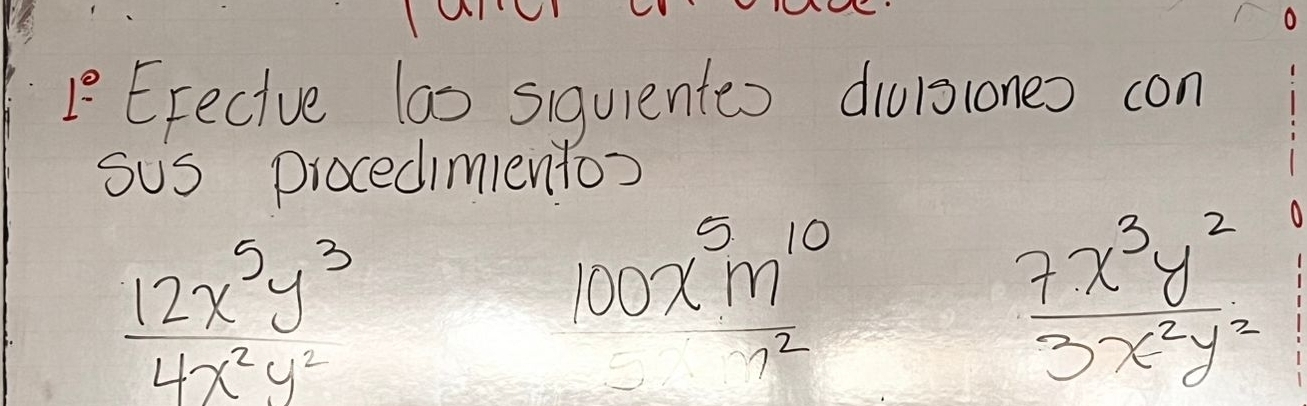 Taller en clase.
1º Efectue las siguientes divisiones con
sus procedimientos
12x⁵y³ / 4x²y²   100x⁵m¹⁰ / 5xm²   7x³y² / 3x²y²